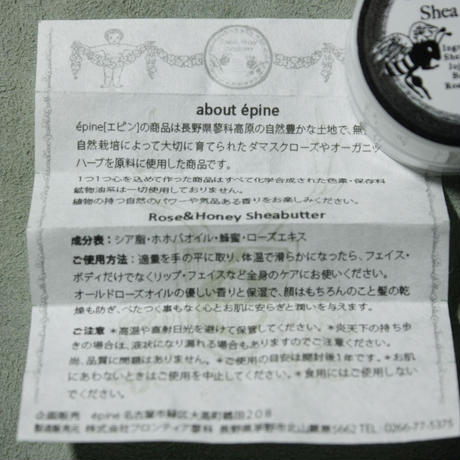 about épine
épine[エピン]の商品は長野県蓼科高原の自然豊かな土地で、無
自然栽培によって大切に育てられたダマスクローズやオーガニッ
ハーブを原料に使用した商品です。
1つ1つ心を込めて作った商品はすべて化学合成された色素・保存料
鉱物油系は一切使用しておりません。
植物の持つ自然のパワーや気品ある香りをお楽しみください。
Rose&Honey Sheabutter
成分表：シア脂・ホホバオイル・蜂蜜・ローズエキス
ご使用方法：適量を手の平に取り、体温で滑らかになったら、フェイス・
ボディだけでなくリップ・フェイスなど全身のケアにお使いください。
オールドローズオイルの優しい香りと保湿で、顔はもちろんのこと髪の乾
燥も防ぎ、べたつく事もなく心とお肌に安らぎと潤いを与えます。
ご注意 *高温や直射日光を避けて保管してください。*炎天下の持ち歩
きの場合は、液状になり漏れる場合もありますのでご注意ください。
尚、品質に問題はありません。*ご使用の目安は開封後1年です。*お肌
にあわないときはご使用を中止してください。*食用にはご使用しない
でください。
企画販売 épine 名古屋市緑区大高町鶴田208
製造販売元 株式会社フロンティア蓼科 長野県茅野市北山鹿原5662 TEL: 0266-77-5375
Shea